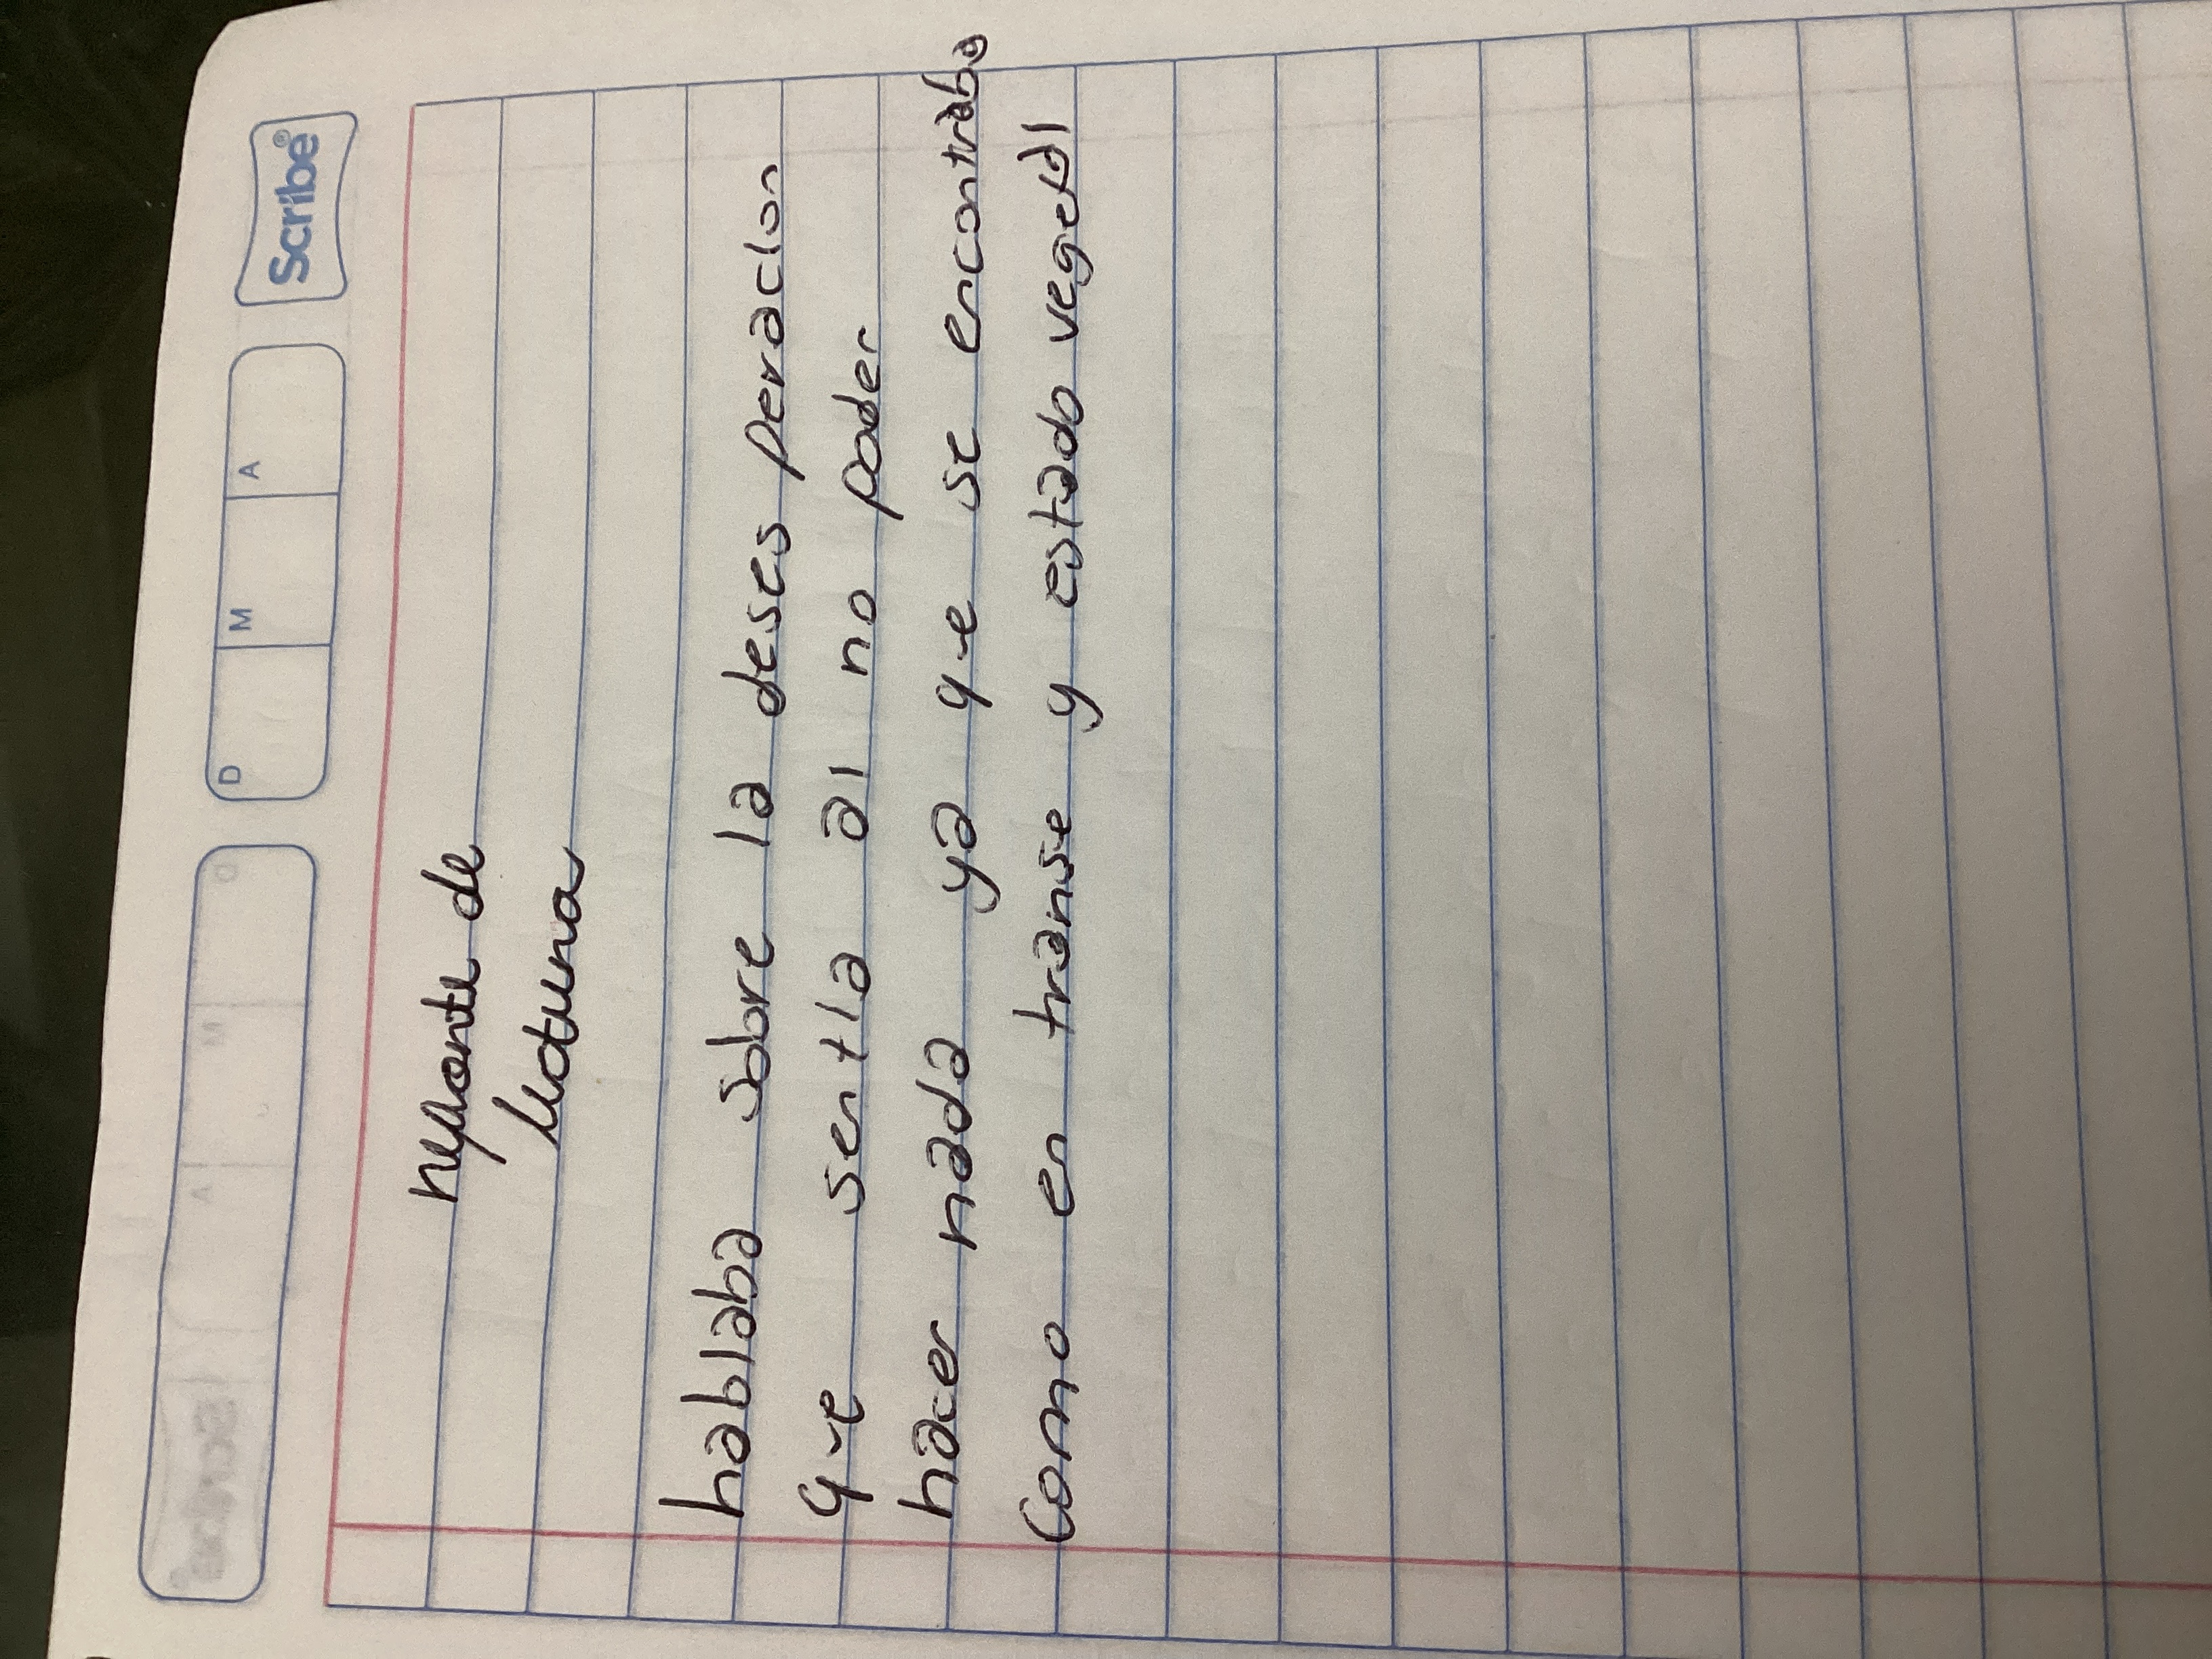 Scribe
D M A
reporte de
lectura
hablaba sobre la deses peracion
que sentia al no poder
hacer nada ya que se encontraba
Como en transe y estado vegetal